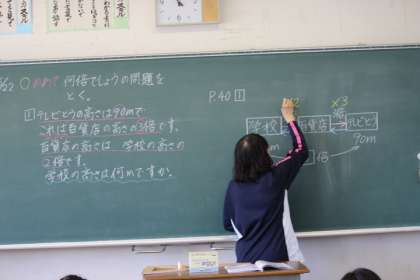 めあて 何倍でしょうの問題を
とく。
1 テレビとうの高さは90mで
これは百貨店の高さの3倍です。
百貨店の高さは、学校の高さの
2倍です。
学校の高さは何mですか。
P.40 1
×2 ×3
学校 百貨店 テレビとう
90m
倍